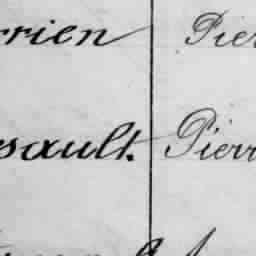 rrien Pier
sault Pierr